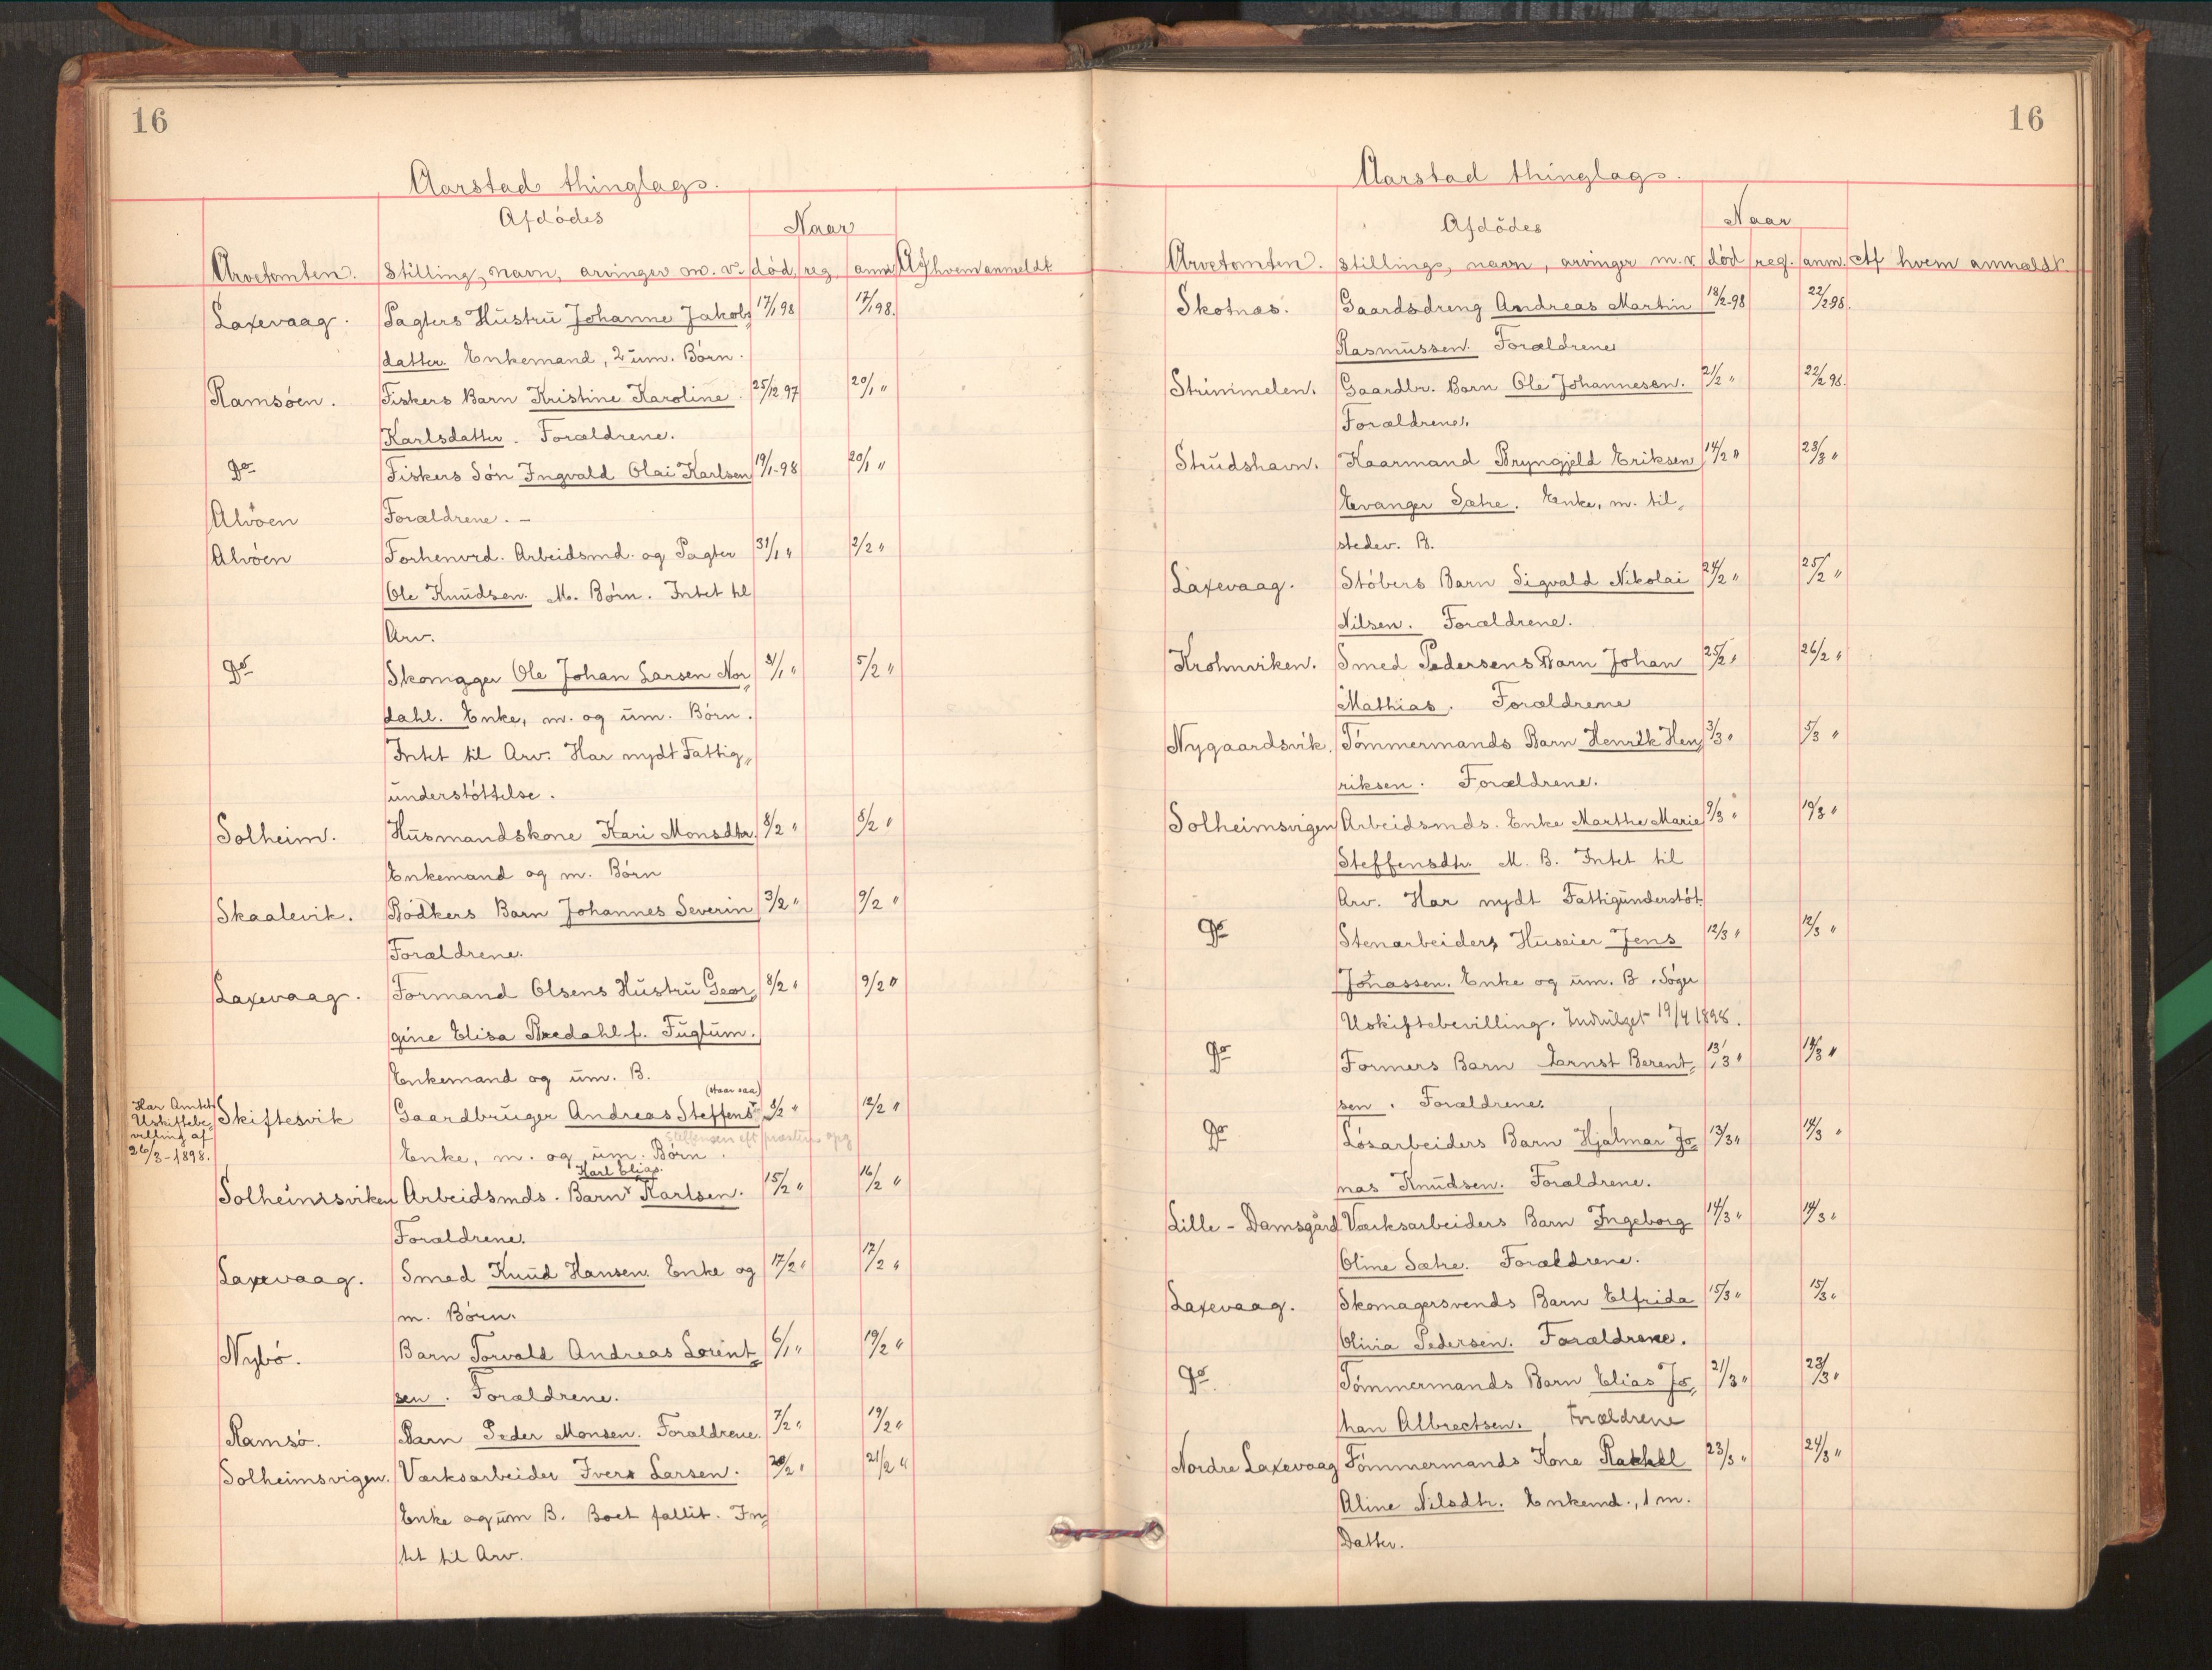 16
Aarstad thinglag.
Afdödes
Naar
Arvetomten. Stilling, navn, arvinger m. v. död, reg. anm. Af hvem anmeldt
Laxevaag. Pagters Hustru Johanne Jakobs- 17/1 98 17/1 98.
datter. Enkemand, 2 um. Börn.
Ramsöen. Fiskers Barn Kristine Karoline 25/12 97 20/1 "
Karlsdatter. Forældrene.
Do Fiskers Sön Ingvald Olai Karlsen 19/1-98 20/1 "
Alvöen Forældrene. -
Alvöen Forhenvrd. Arbeidsmd. og Pagter 31/1 " 2/2 "
Ole Knudsen. M. Börn. Intet til
Arv.
Do Skomager Ole Johan Larsen Nor- 31/1 " 5/2 "
dahl. Enke, m. og um. Börn.
Intet til Arv. Har nydt Fattig-
understöttelse.
Solheim. Husmandskone Kari Monsdtr. 8/2 " 8/2 "
Enkemand og m. Börn
Skaalevik. Bödkers Barn Johannes Severin 3/2 " 9/2 "
Forældrene.
Laxevaag. Formand Olsens Hustru Geor- 8/2 " 9/2 "
gine Elisa Bredahl f. Fuglum.
Enkemand og um. B.
Har Amtets
Uskiftebe-
villing af
26/3-1898.
Skiftesvik Gaardbruger Andreas Steffens 8/2 " 12/2 "
Steffensen eft præstens opg
Enke, m. og um. Börn.
Karl Elias
Solheimsviken Arbeidsmds. Barn Karlsen. 15/2 " 16/2 "
Forældrene.
Laxevaag. Smed Knud Hansen. Enke og 17/2 " 17/2 "
m. Börn.
Nybö. Barn Torvald Andreas Lorent- 6/1 " 19/2 "
sen. Forældrene.
Ramsö. Barn Peder Monsen. Forældrene. 7/2 " 19/2 "
Solheimsvigen. Værksarbeider Iver Larsen. 20/2 " 21/2 "
Enke og um B. Boet fallit. In-
tet til Arv.
16
Aarstad thinglag.
Afdödes
Naar
Arvetomten. Stilling, navn, arvinger m. v. död reg. anm. Af hvem anmeldt.
Skotnæs. Gaardsdreng Andreas Martin 18/2-98 22/2 98.
Rasmussen. Forældrene
Strimmelen. Gaardbr. Barn Ole Johannesen. 21/2 " 22/2 98.
Forældrene.
Strudshavn. Kaarmand Bryngjeld Eriksen 14/2 " 23/3 "
Evanger Sætre. Enke, m. til-
stedev. B.
Laxevaag. Stöbers Barn Sigvald Nikolai 24/2 " 25/2 "
Nilsen. Forældrene.
Krohnviken. Smed Pedersens Barn Johan 25/2 " 26/2 "
Mathias. Forældrene
Nygaardsvik. Tömmermands Barn Henrik Hen- 3/3 " 5/3 "
riksen. Forældrene.
Solheimsvigen Arbeidsmds. Enke Marthe Marie 9/3 " 10/3 "
Steffensdtr. M. B. Intet til
Arv. Har nydt Fattigunderstöt.
Do Stenarbeider, Huseier Jens 12/3 " 12/3 "
Jonassen. Enke og um. B. Söger
Uskiftebevilling. Indvilget 19/4 1898.
Do Formers Barn Ernst Berent- 13/3 " 14/3 "
sen. Forældrene.
Do Lösarbeiders Barn Hjalmar Jo- 13/3 " 14/3 "
nas Knudsen. Forældrene.
Lille-Damsgård Værksarbeiders Barn Ingeborg 14/3 " 14/3 "
Oline Sætre. Forældrene.
Laxevaag. Skomagersvends Barn Elfrida 15/3 " 15/3 "
Olivia Pedersen. Forældrene.
Do Tömmermands Barn Elias Jo- 21/3 " 23/3 "
han Albrectsen. Forældrene
Nordre Laxevaag Tömmermands Kone Rakhel 23/3 " 24/3 "
Aline Nilsdtr. Enkemd., 1 m.
Datter.